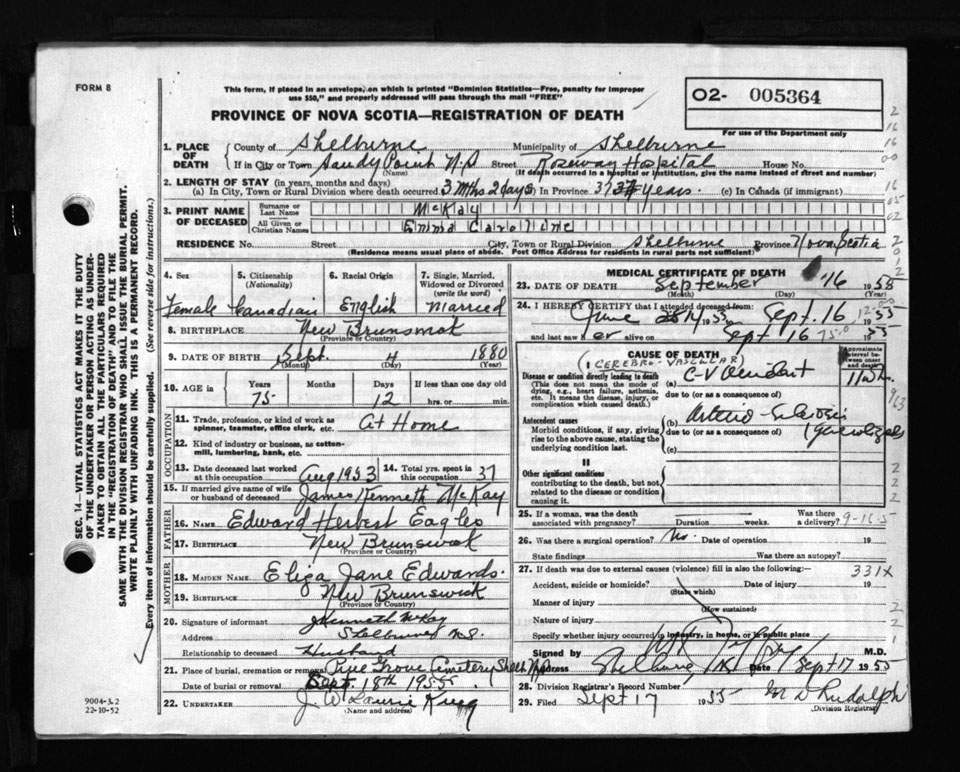 FORM 8
This form, if placed in an envelope, on which is printed "Dominion Statistics—Free, penalty for improper
use $50," and properly addressed will pass through the mail "FREE"
PROVINCE OF NOVA SCOTIA—REGISTRATION OF DEATH
O2- 005364
For use of the Department only
1. PLACE OF DEATH County of Shelburne Municipality of Shelburne
If in City or Town Sandy Point N.S Street Roseway Hospital House No.
(Name) (If death occurred in a hospital or institution, give the name instead of street and number)
2. LENGTH OF STAY (in years, months and days)
(a) In City, Town or Rural Division where death occurred 3 Mths 2 days (b) In Province 37 years. (c) In Canada (if immigrant)
3. PRINT NAME OF DECEASED Surname or Last Name McKay
All Given or Christian Names Emma Caroline
RESIDENCE No. Street City, Town or Rural Division Shelburne Province Nova Scotia
(Residence means usual place of abode. Post Office Address for residents in rural parts not sufficient)
4. Sex 5. Citizenship (Nationality) 6. Racial Origin 7. Single, Married, Widowed or Divorced (write the word)
Female Canadian English Married
8. BIRTHPLACE New Brunswick
(Province or Country)
9. DATE OF BIRTH Sept. 4 1880
(Month) (Day) (Year)
10. AGE in Years Months Days If less than one day old
75 12 hrs. or min.
OCCUPATION
11. Trade, profession, or kind of work as spinner, teamster, office clerk, etc. At Home
12. Kind of industry or business, as cotton-mill, lumbering, bank, etc.
13. Date deceased last worked at this occupation Aug 1953 14. Total yrs. spent in this occupation 37
15. If married give name of wife or husband of deceased James Kenneth McKay
FATHER
16. NAME Edward Herbest Eagles
17. BIRTHPLACE New Brunswick
(Province or Country)
MOTHER
18. MAIDEN NAME Eliza Jane Edwards.
19. BIRTHPLACE New Brunswick
(Province or Country)
20. Signature of informant Kenneth McKay
Address Shelburne N.S.
Relationship to deceased Husband
21. Place of burial, cremation or removal Pine Grove Cemetery Shelb
Date of burial or removal Sept. 18th 1955
22. UNDERTAKER J. W Laurie
(Name and address)
MEDICAL CERTIFICATE OF DEATH
23. DATE OF DEATH September 16 1955
(Month) (Day) (Year)
24. I HEREBY CERTIFY that I attended deceased from:
June 14 1955 Sept. 16 1955
and last saw her alive on Sept 16 1955
CAUSE OF DEATH
Approximate interval between onset and death
(CEREBRO-VASCULAR)
I
Disease or condition directly leading to death (a) C-V Accident
(This does not mean the mode of dying, e.g., heart failure, asthenia, etc. It means the disease, injury, or complication which caused death.)
due to (or as a consequence of)
Antecedent causes (b) Arterio-Sclerosis
Morbid conditions, if any, giving rise to the above cause, stating the underlying condition last.
due to (or as a consequence of) (generalized)
(c)
II
Other significant conditions contributing to the death, but not related to the disease or condition causing it.
25. If a woman, was the death associated with pregnancy? Duration weeks. Was there a delivery? 9-16-5
26. Was there a surgical operation? No. Date of operation 19
State findings Was there an autopsy?
27. If death was due to external causes (violence) fill in also the following: 331X
Accident, suicide or homicide? Date of injury 19
(State which)
Manner of injury
(How sustained)
Nature of injury
Specify whether injury occurred in industry, in home, or in public place
Signed by M.D.
Address Shelburne, N.S. Date Sept 17 1955
28. Division Registrar's Record Number
29. Filed Sept 17 1955 M D Rudolph
Division Registrar
SEC. 14—VITAL STATISTICS ACT MAKES IT THE DUTY
OF THE UNDERTAKER OR PERSON ACTING AS UNDER-
TAKER TO OBTAIN ALL THE PARTICULARS REQUIRED
IN THE "REGISTRATION OF DEATH" AND TO FILE THE
SAME WITH THE DIVISION REGISTRAR WHO SHALL ISSUE THE BURIAL PERMIT.
WRITE PLAINLY WITH UNFADING INK. THIS IS A PERMANENT RECORD.
Every item of information should be carefully supplied. (See reverse side for instructions.)
9004-3.2
22-10-52